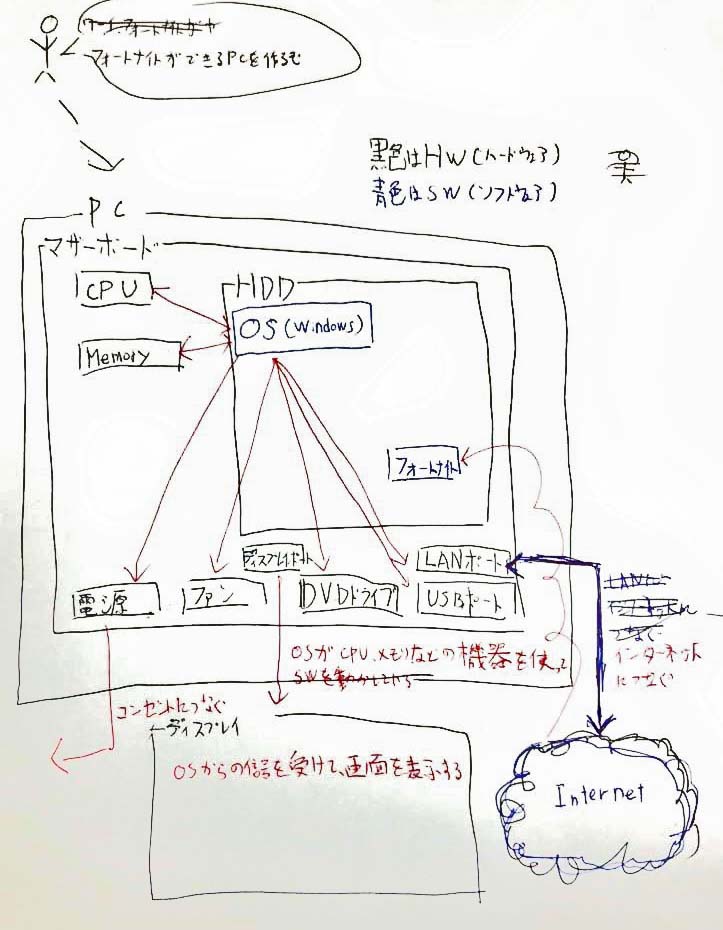 フォートナイトができるPCを作るむ
黒色はHW(ハードウェア)
青色はSW(ソフトウェア)
PC
マザーボード
CPU
HDD
OS(Windows)
Memory
フォートナイト
ディスプレイポート
LANポート
電源
ファン
DVDドライブ
USBポート
OSがCPU、メモリなどの機器を使って
SWを動かしてたら
インターネット
につなぐ
コンセントにつなぐ
ディスプレイ
OSからの信号を受けて、画面を表示する
Internet